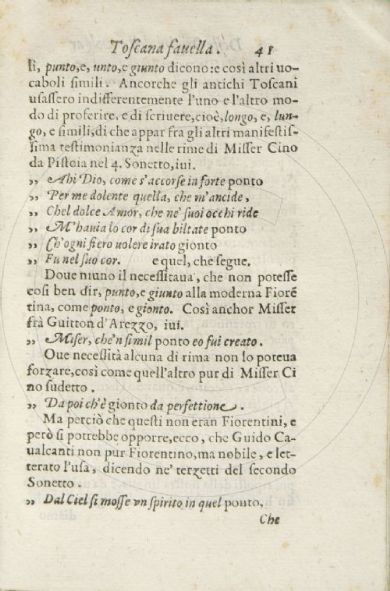 Toscana fauella. 41
li, punto, e, unto, e giunto dicono: e così altri uo-
caboli simili. Ancorche gli antichi Toscani
usassero indifferentemente l'uno e l'altro mo-
do di proferire, e di scriuere, cioè, longo, e, lun-
go, e simili, di che appar fra gli altri manifestis-
sima testimonianza nelle rime di Misser Cino
da Pistoia nel 4. Sonetto, iui.
„ Ahi Dio, come s'accorse in forte ponto
„ Per me dolente quella, che m'ancide,
„ Chel dolce Amor, che ne' suoi occhi ride
„ M'hauia lo cor di sua biltate ponto
„ Ch'ogni fiero uolere irato gionto
„ Fu nel suo cor. e quel, che segue.
Doue niuno il necessitaua, che non potesse
cosi ben dir, punto, e giunto alla moderna Fiorẽ
tina, come ponto, e gionto. Così anchor Misser
frà Guitton d'Arezzo, iui.
„ Miser, che'n simil ponto eo fui creato.
Oue necessità alcuna di rima non lo poteua
forzare, così come quell'altro pur di Misser Ci
no sudetto.
„ Da poi ch'è gionto da perfettione.
Ma perciò che questi non eran Fiorentini, e
però si potrebbe opporre, ecco, che Guido Ca-
ualcanti non pur Fiorentino, ma nobile, e let-
terato l'usa, dicendo ne' terzetti del secondo
Sonetto.
„ Dal Ciel si mosse vn spirito in quel ponto.
Che